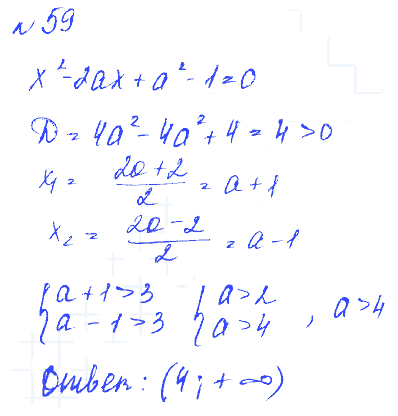 № 59
x² - 2ax + a² - 1 = 0
D = 4a² - 4a² + 4 = 4 > 0
x₁ = (2a + 2)/2 = a + 1
x₂ = (2a - 2)/2 = a - 1
{a + 1 > 3 {a > 2
{a - 1 > 3 {a > 4 , a > 4
Ответ: (4; +∞)